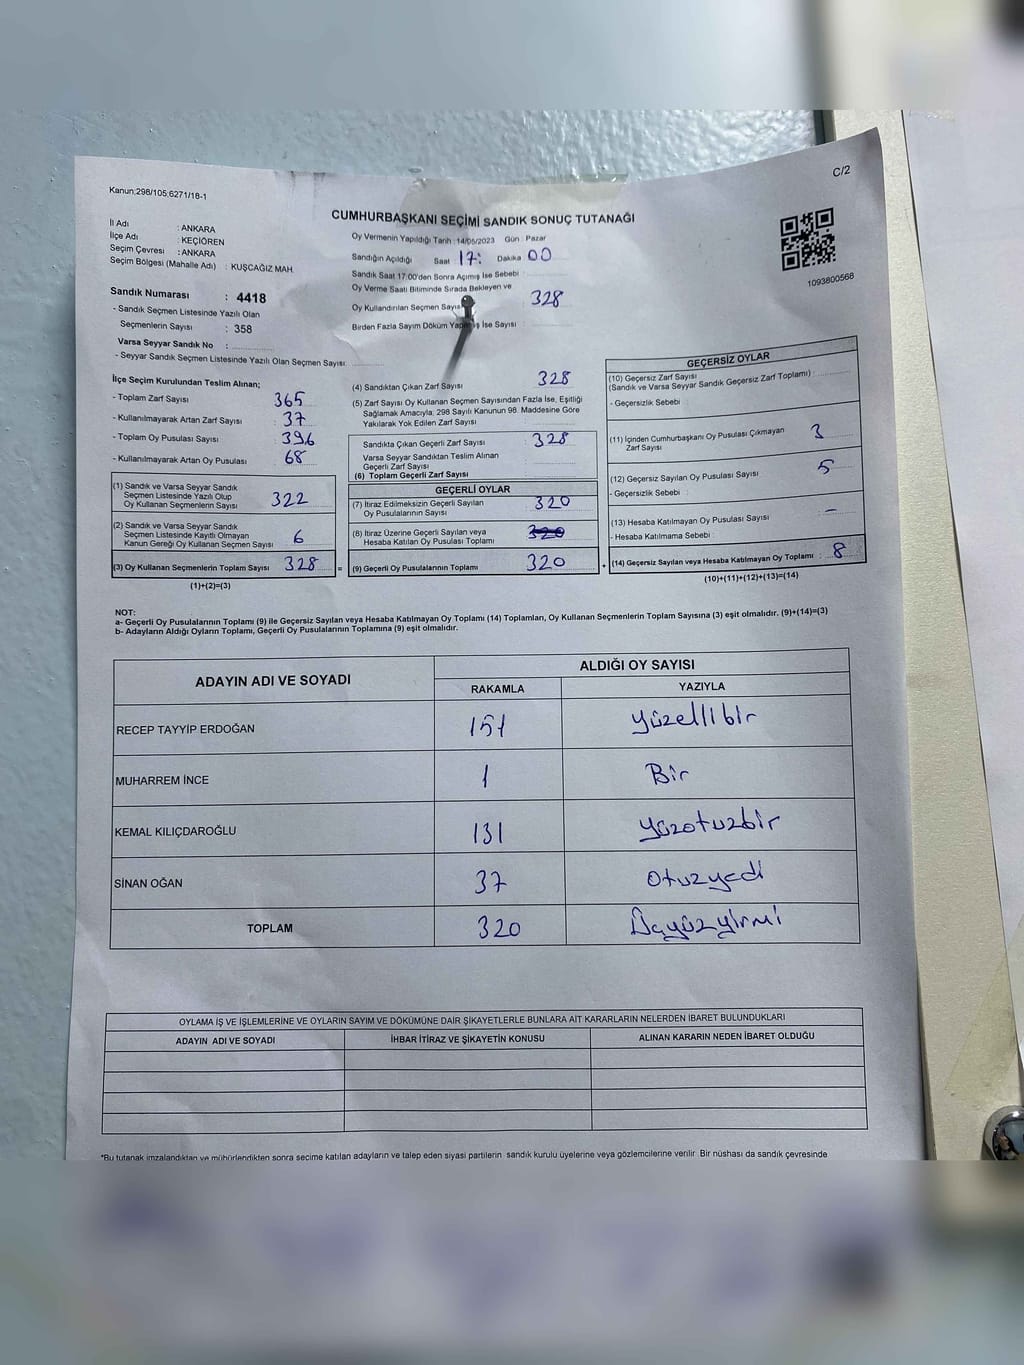 Kanun:298/105;6271/18-1
C/2
CUMHURBAŞKANI SEÇİMİ SANDIK SONUÇ TUTANAĞI
İl Adı : ANKARA
İlçe Adı : KEÇİÖREN
Seçim Çevresi : ANKARA
Seçim Bölgesi (Mahalle Adı) : KUŞCAĞIZ MAH.
Sandık Numarası : 4418
- Sandık Seçmen Listesinde Yazılı Olan
Seçmenlerin Sayısı : 358
Varsa Seyyar Sandık No :
- Seyyar Sandık Seçmen Listesinde Yazılı Olan Seçmen Sayısı:
Oy Vermenin Yapıldığı Tarih :14/05/2023 Gün : Pazar
Sandığın Açıldığı Saat 17: Dakika 00
Sandık Saat 17:00'den Sonra Açılmış İse Sebebi :
Oy Verme Saati Bitiminde Sırada Bekleyen ve
Oy Kullandırılan Seçmen Sayısı 328
Birden Fazla Sayım Döküm Yapılmış İse Sayısı :
1093800568
İlçe Seçim Kurulundan Teslim Alınan;
- Toplam Zarf Sayısı : 365
- Kullanılmayarak Artan Zarf Sayısı : 37
- Toplam Oy Pusulası Sayısı : 396
- Kullanılmayarak Artan Oy Pusulası : 68
(1) Sandık ve Varsa Seyyar Sandık
Seçmen Listesinde Yazılı Olup
Oy Kullanan Seçmenlerin Sayısı : 322
(2) Sandık ve Varsa Seyyar Sandık
Seçmen Listesinde Kayıtlı Olmayan
Kanun Gereği Oy Kullanan Seçmen Sayısı : 6
(3) Oy Kullanan Seçmenlerin Toplam Sayısı : 328 =
(1)+(2)=(3)
(4) Sandıktan Çıkan Zarf Sayısı : 328
(5) Zarf Sayısı Oy Kullanan Seçmen Sayısından Fazla İse, Eşitliği
Sağlamak Amacıyla; 298 Sayılı Kanunun 98. Maddesine Göre
Yakılarak Yok Edilen Zarf Sayısı
Sandıkta Çıkan Geçerli Zarf Sayısı : 328
Varsa Seyyar Sandıktan Teslim Alınan
Geçerli Zarf Sayısı
(6) Toplam Geçerli Zarf Sayısı
GEÇERLİ OYLAR
(7) İtiraz Edilmeksizin Geçerli Sayılan
Oy Pusulalarının Sayısı : 320
(8) İtiraz Üzerine Geçerli Sayılan veya
Hesaba Katılan Oy Pusulası Toplamı 320
(9) Geçerli Oy Pusulalarının Toplamı 320 +
GEÇERSİZ OYLAR
(10) Geçersiz Zarf Sayısı
(Sandık ve Varsa Seyyar Sandık Geçersiz Zarf Toplamı) :
- Geçersizlik Sebebi :
(11) İçinden Cumhurbaşkanı Oy Pusulası Çıkmayan
Zarf Sayısı : 3
(12) Geçersiz Sayılan Oy Pusulası Sayısı : 5
- Geçersizlik Sebebi :
(13) Hesaba Katılmayan Oy Pusulası Sayısı : -
- Hesaba Katılmama Sebebi :
(14) Geçersiz Sayılan veya Hesaba Katılmayan Oy Toplamı : 8
(10)+(11)+(12)+(13)=(14)
NOT:
a- Geçerli Oy Pusulalarının Toplamı (9) ile Geçersiz Sayılan veya Hesaba Katılmayan Oy Toplamı (14) Toplamları, Oy Kullanan Seçmenlerin Toplam Sayısına (3) eşit olmalıdır. (9)+(14)=(3)
b- Adayların Aldığı Oyların Toplamı, Geçerli Oy Pusulalarının Toplamına (9) eşit olmalıdır.
ADAYIN ADI VE SOYADI ALDIĞI OY SAYISI
RAKAMLA YAZIYLA
RECEP TAYYİP ERDOĞAN 151 yüzellibir
MUHARREM İNCE 1 Bir
KEMAL KILIÇDAROĞLU 131 yüzotuzbir
SİNAN OĞAN 37 Otuzyedi
TOPLAM 320 Üçyüzyirmi
OYLAMA İŞ VE İŞLEMLERİNE VE OYLARIN SAYIM VE DÖKÜMÜNE DAİR ŞİKAYETLERLE BUNLARA AİT KARARLARIN NELERDEN İBARET BULUNDUKLARI
ADAYIN ADI VE SOYADI İHBAR İTİRAZ VE ŞİKAYETİN KONUSU ALINAN KARARIN NEDEN İBARET OLDUĞU
*Bu tutanak imzalandıktan ve mühürlendikten sonra seçime katılan adayların ve talep eden siyasi partilerin sandık kurulu üyelerine veya gözlemcilerine verilir. Bir nüshası da sandık çevresinde